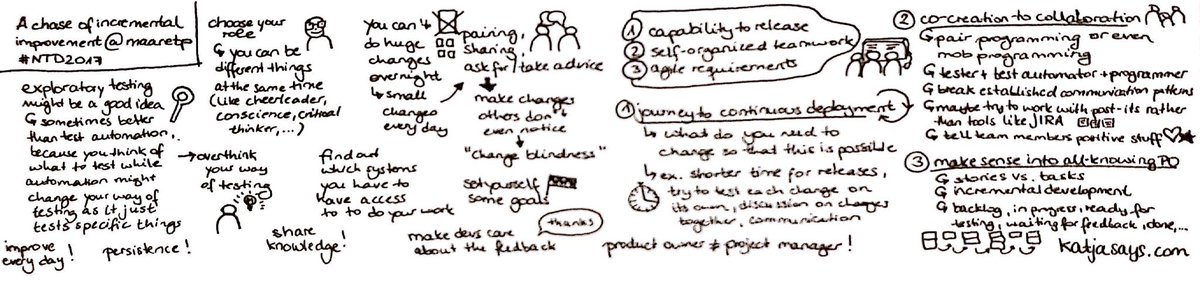 A chase of incremental
improvement @maaretp
#NTD2017
exploratory testing
might be a good idea
↳ sometimes better
than test automation,
because you think of
what to test while
automation might
change your way of
testing as it just
tests specific things
improve
every day!
persistence!
choose your
role
↳ you can be
different things
at the same time
(like cheerleader,
conscience, critical
thinker,...)
→ overthink
your way
of testing
share
knowledge!
you can
do huge
changes
overnight
↳ small
changes
every day
find out
which systems
you have to
have access
to to do your work
pairing,
sharing,
ask for/take advice
make changes
others don't
even notice
"change blindness"
set yourself
some goals
make devs care
about the feedback
thanks
1 capability to release
2 self-organized teamwork
3 agile requirements
1 journey to continuous deployment
↳ what do you need to
change so that this is possible
↳ ex. shorter time for releases,
try to test each change on
its own, discussion on changes
together, communication
product owner ≠ project manager!
2 co-creation to collaboration
↳ pair programming or even
mob programming
↳ tester + test automator + programmer
↳ break established communication patterns
↳ maybe try to work with post-its rather
than tools like JIRA
↳ tell team members positive stuff
3 make sense into all-knowing PO
↳ stories vs. tasks
↳ incremental development
↳ backlog, in progress, ready for
testing, waiting for feedback, done,...
katjasays.com